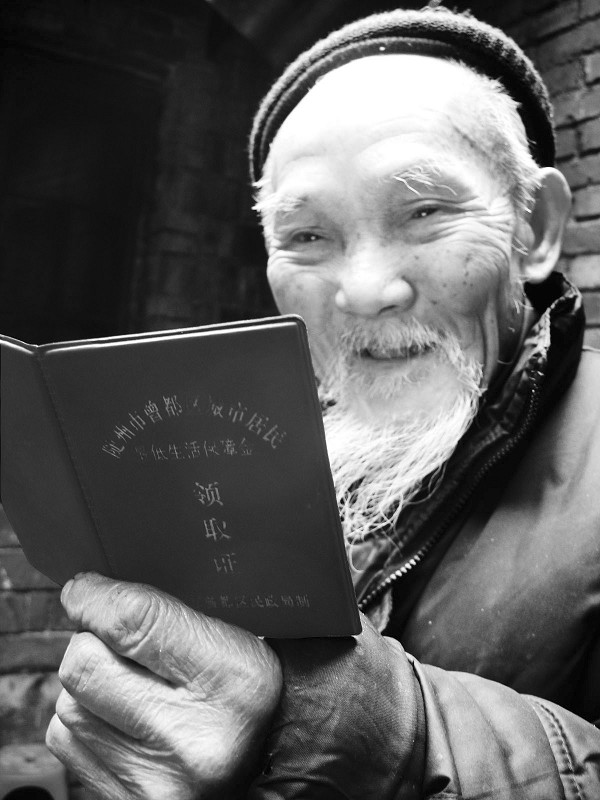 随州市曾都区城市居民
最低生活保障金
领
取
证
曾都区民政局制